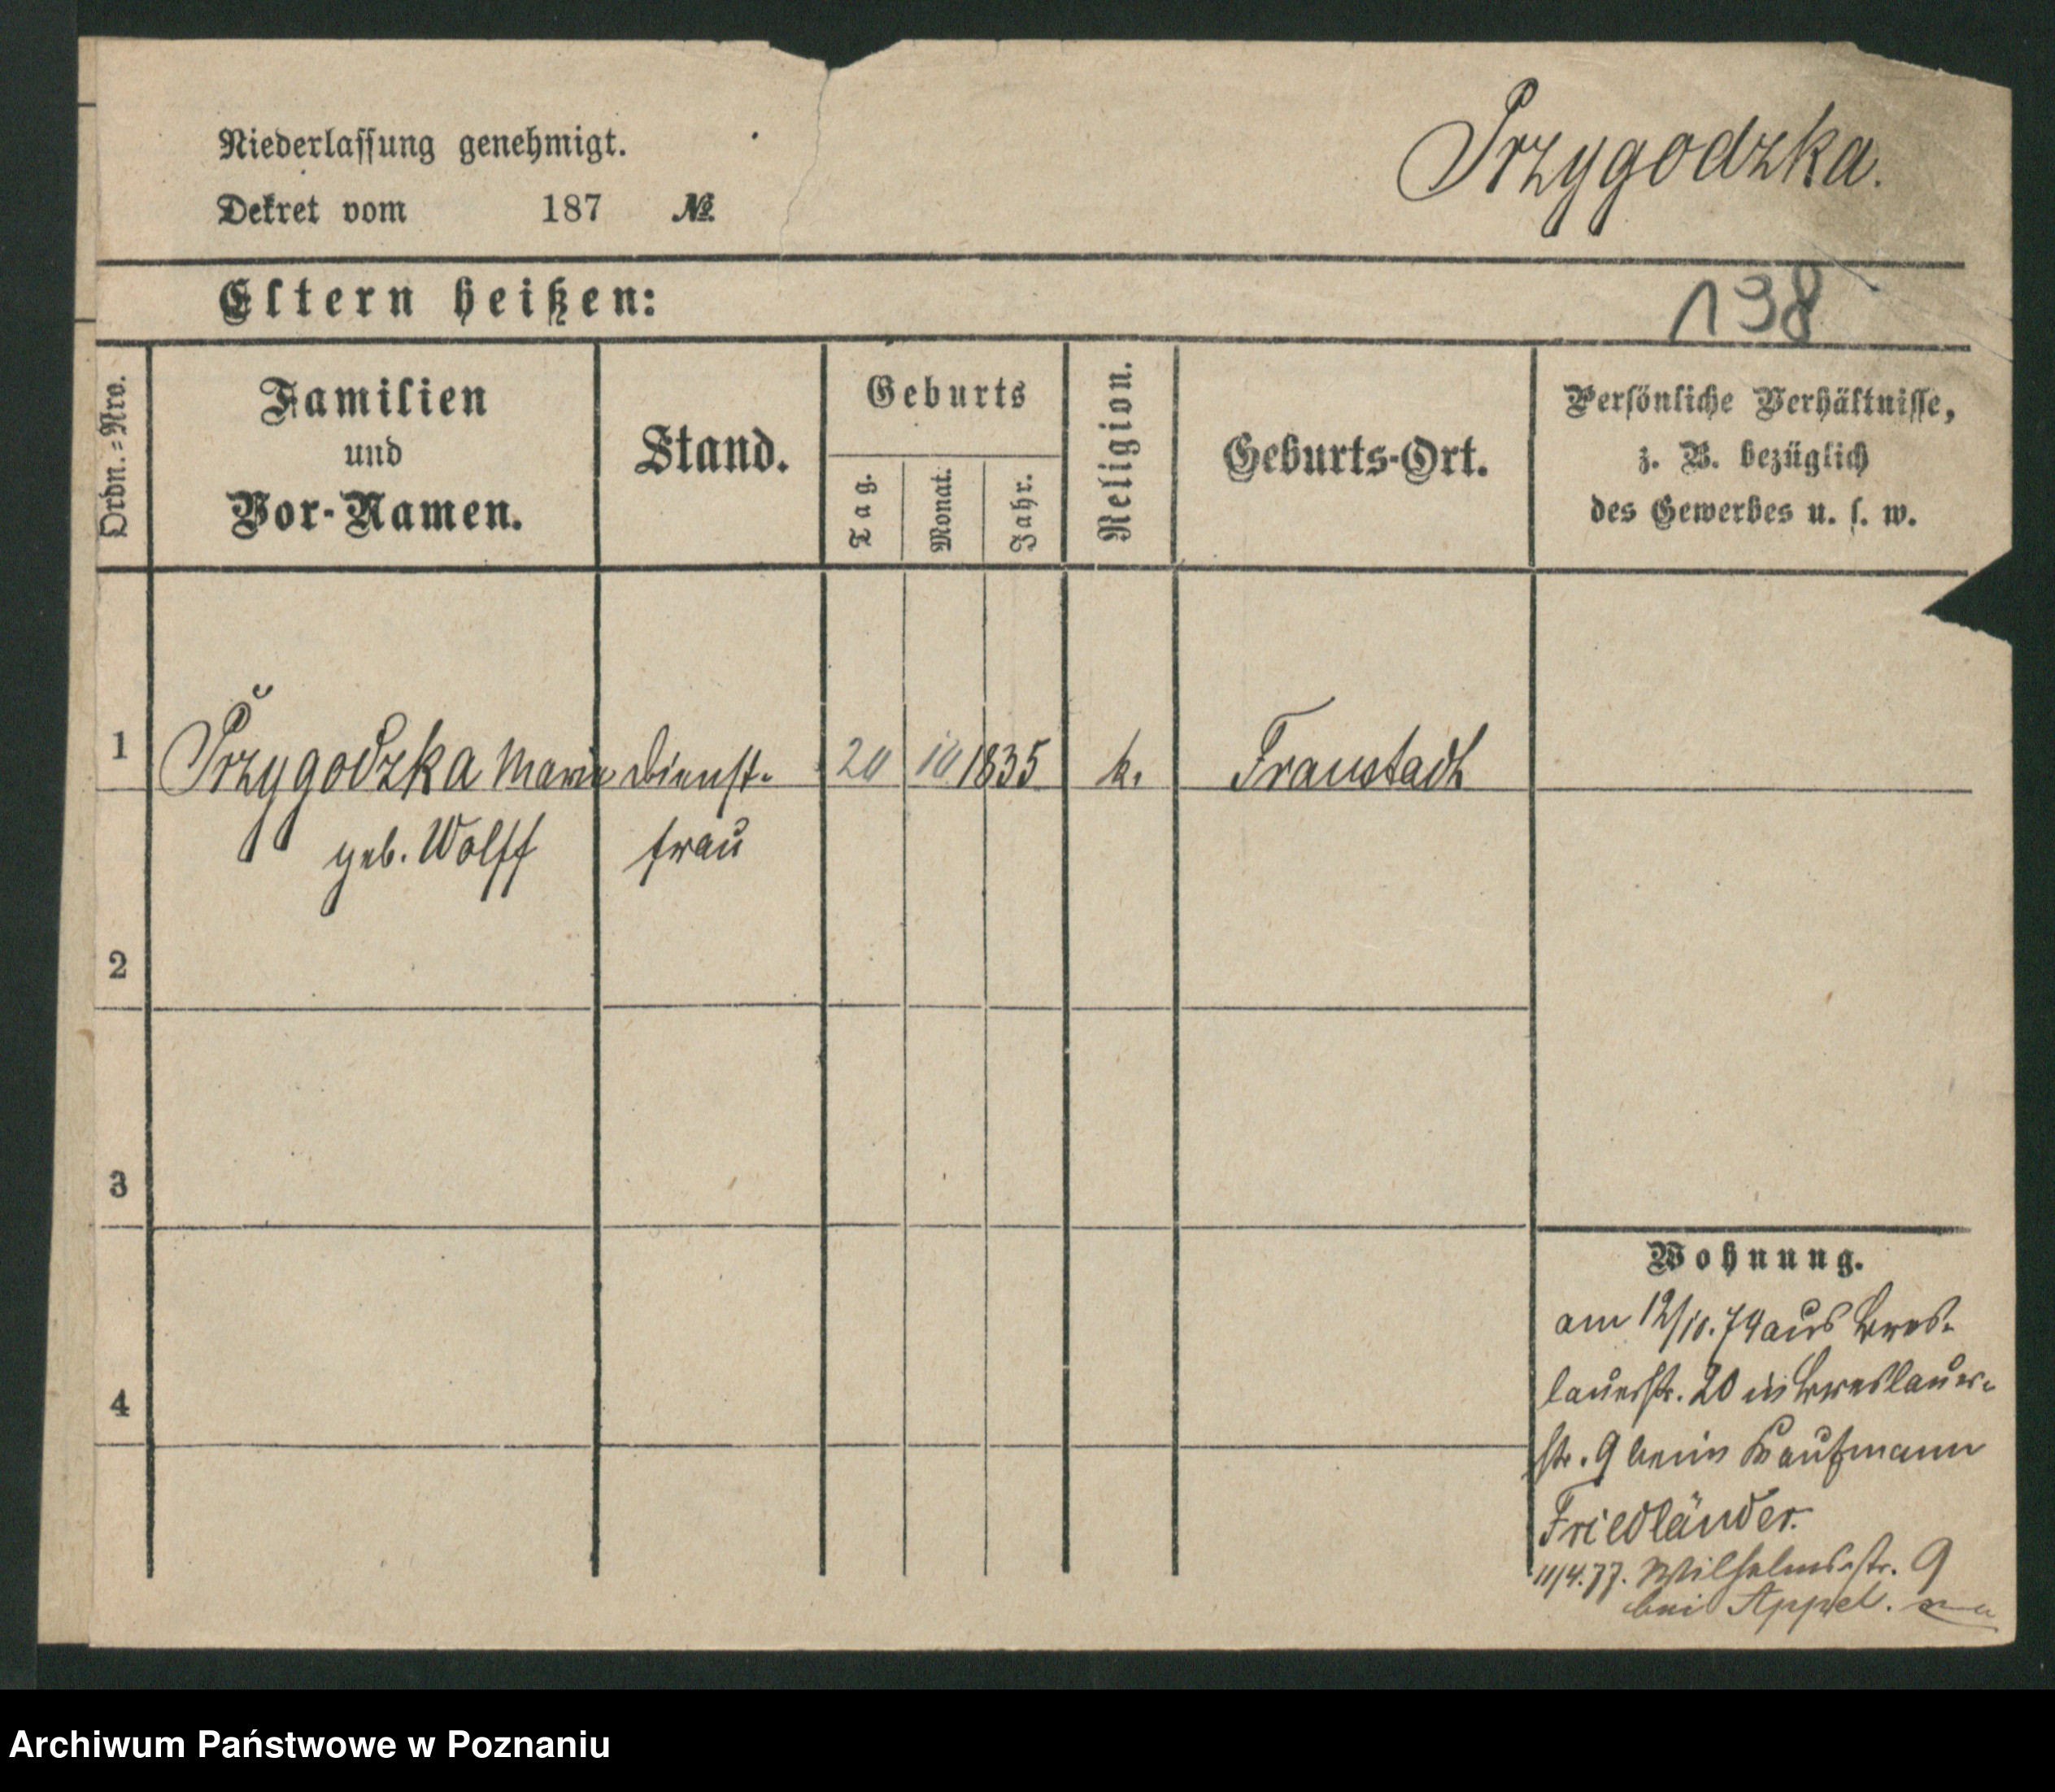 Niederlassung genehmigt.
Przygodzka.
Dekret vom 187 №
Eltern heißen:
138
Ordn.-Nro.
Familien
und
Vor-Namen.
Stand.
Geburts
Tag.
Monat.
Jahr.
Religion.
Geburts-Ort.
Persönliche Verhältnisse,
z. B. bezüglich
des Gewerbes u. s. w.
1 Przygodzka Marie Dienst- 20 10 1835 k. Fraustadt
geb. Wolff frau
2
3
4
Wohnung.
am 12/10. 74 aus Bres-
lauerstr. 20 in Breslauer-
str. 9 beim Kaufmann
Friedländer.
11/4. 77. Wilhelmsstr. 9
bei Appel.
Archiwum Państwowe w Poznaniu